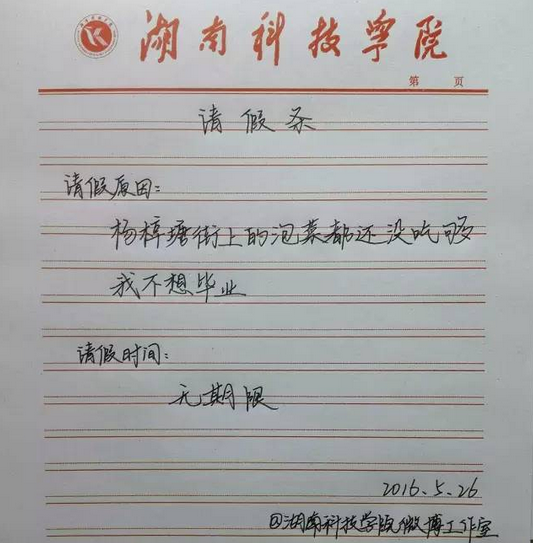 湖南科技学院
第 页
请假条
请假原因：
杨梓塘街上的泡菜都还没吃够
我不想毕业
请假时间：
无期限
2016.5.26
@湖南科技学院微博工作室